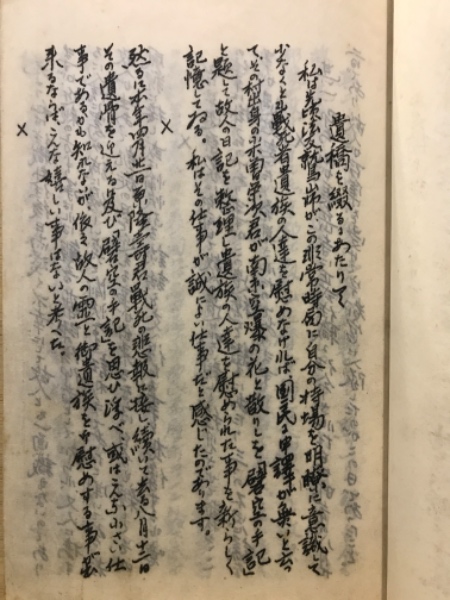 遺稿を綴るにあたりて
私は美濃の又鷲山師がこの非常時局に自分の持場を明瞭に意識して
少なくとも戦死者遺族の人達を慰めなければ国民に申譯が無いと云っ
てその村出身の小木曽栄次君が南京空爆の花と散りしを「碧空の手記」
と題して故人の日記を整理し遺族の人達を慰められた事を新らしく
記憶してゐる。私はその仕事が誠によい仕事だと感じたのであります。
×
然るに本年四月廿一日 君戦死の悲報に接し続いて去る八月十二日
その遺骨を迎えるに及び「碧空の手記」を思ひ浮べ、或はこんな小さい仕
事であるかも知れないが後々故人の霊と御遺族とを御慰めする事が出
来るならば、こんな嬉しい事はないと考へた。
×